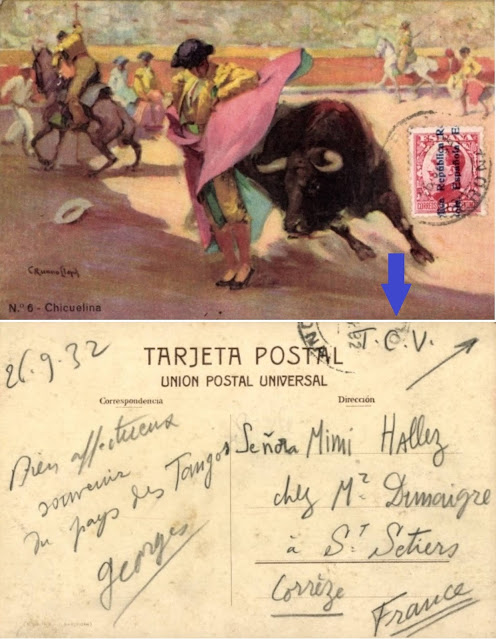 ESPAÑA
CORREOS
República
Española
C Ruano Llopis
N.º 6 - Chicuelina
26.9.32
T.C.V.
TARJETA POSTAL
UNION POSTAL UNIVERSAL
Correspondencia
Dirección
Bien affectueux
souvenir
du pays des Tangos
Georges
Señora Mimi Hallez
chez Mr Dumaigre
à St Setiers
Corrèze
France